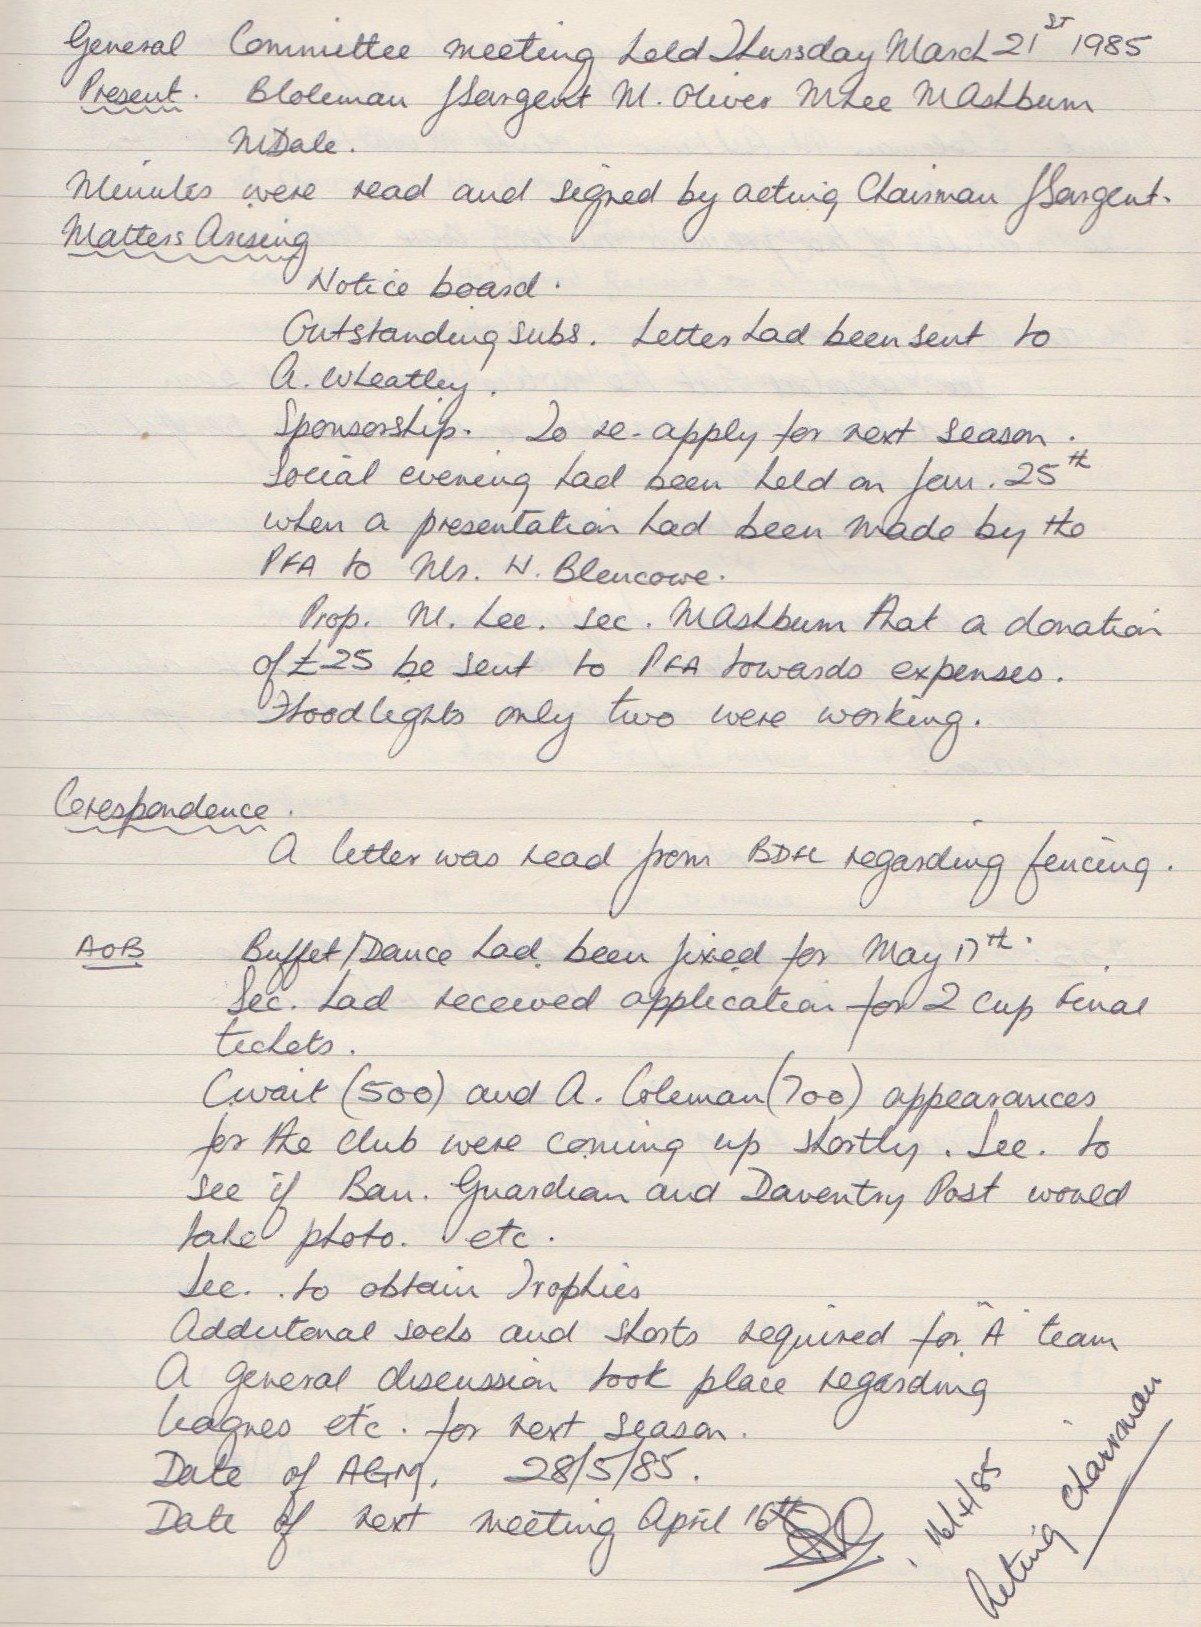 General Committee meeting held Thursday March 21st 1985
Present. B Coleman J Sargent M. Oliver M Lee M Ashburn
M Dale.
Minutes were read and signed by acting Chairman J Sargent.
Matters Arising
Notice board.
Outstanding subs. Letter had been sent to
A. Wheatley.
Sponsorship. To re-apply for next season.
Social evening had been held on Jan. 25th
when a presentation had been made by the
PFA to Mr. N. Blencowe.
Prop. M. Lee. Sec. M Ashburn that a donation
of £25 be sent to PFA towards expenses.
Floodlights only two were working.
Corespondence.
A letter was read from BDFL regarding fencing.
AOB Buffet/Dance had been fixed for May 17th.
Sec. had received application for 2 Cup Final
tickets.
C Wait (500) and A. Coleman (700) appearances
for the club were coming up shortly. Sec. to
see if Ban. Guardian and Daventry Post would
take photo. etc.
Sec. to obtain Trophies
Additonal socks and shorts required for "A" team
A general discussion took place regarding
leagues etc. for next season.
Date of AGM. 28/5/85.
Date of next meeting April 16th
16/4/85
Acting Chairman